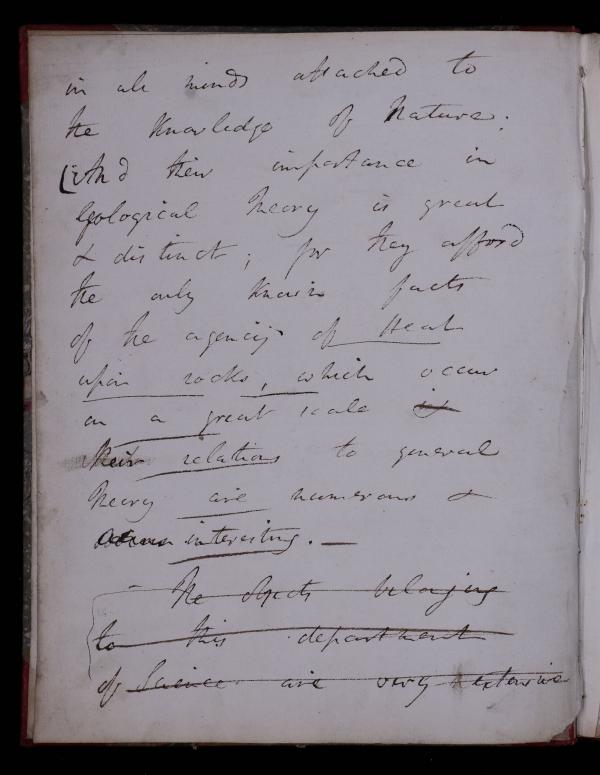 in all minds attached to
the Knowledge of Nature.
(And their importance in
Geological Theory is great
& distinct; for they afford
the only Known facts
of the agency of Heat
upon rocks, which occur
on a great scale
their relations to general
Theory are numerous &
interesting. —
The objects belonging
to this department
of Science are very extensive